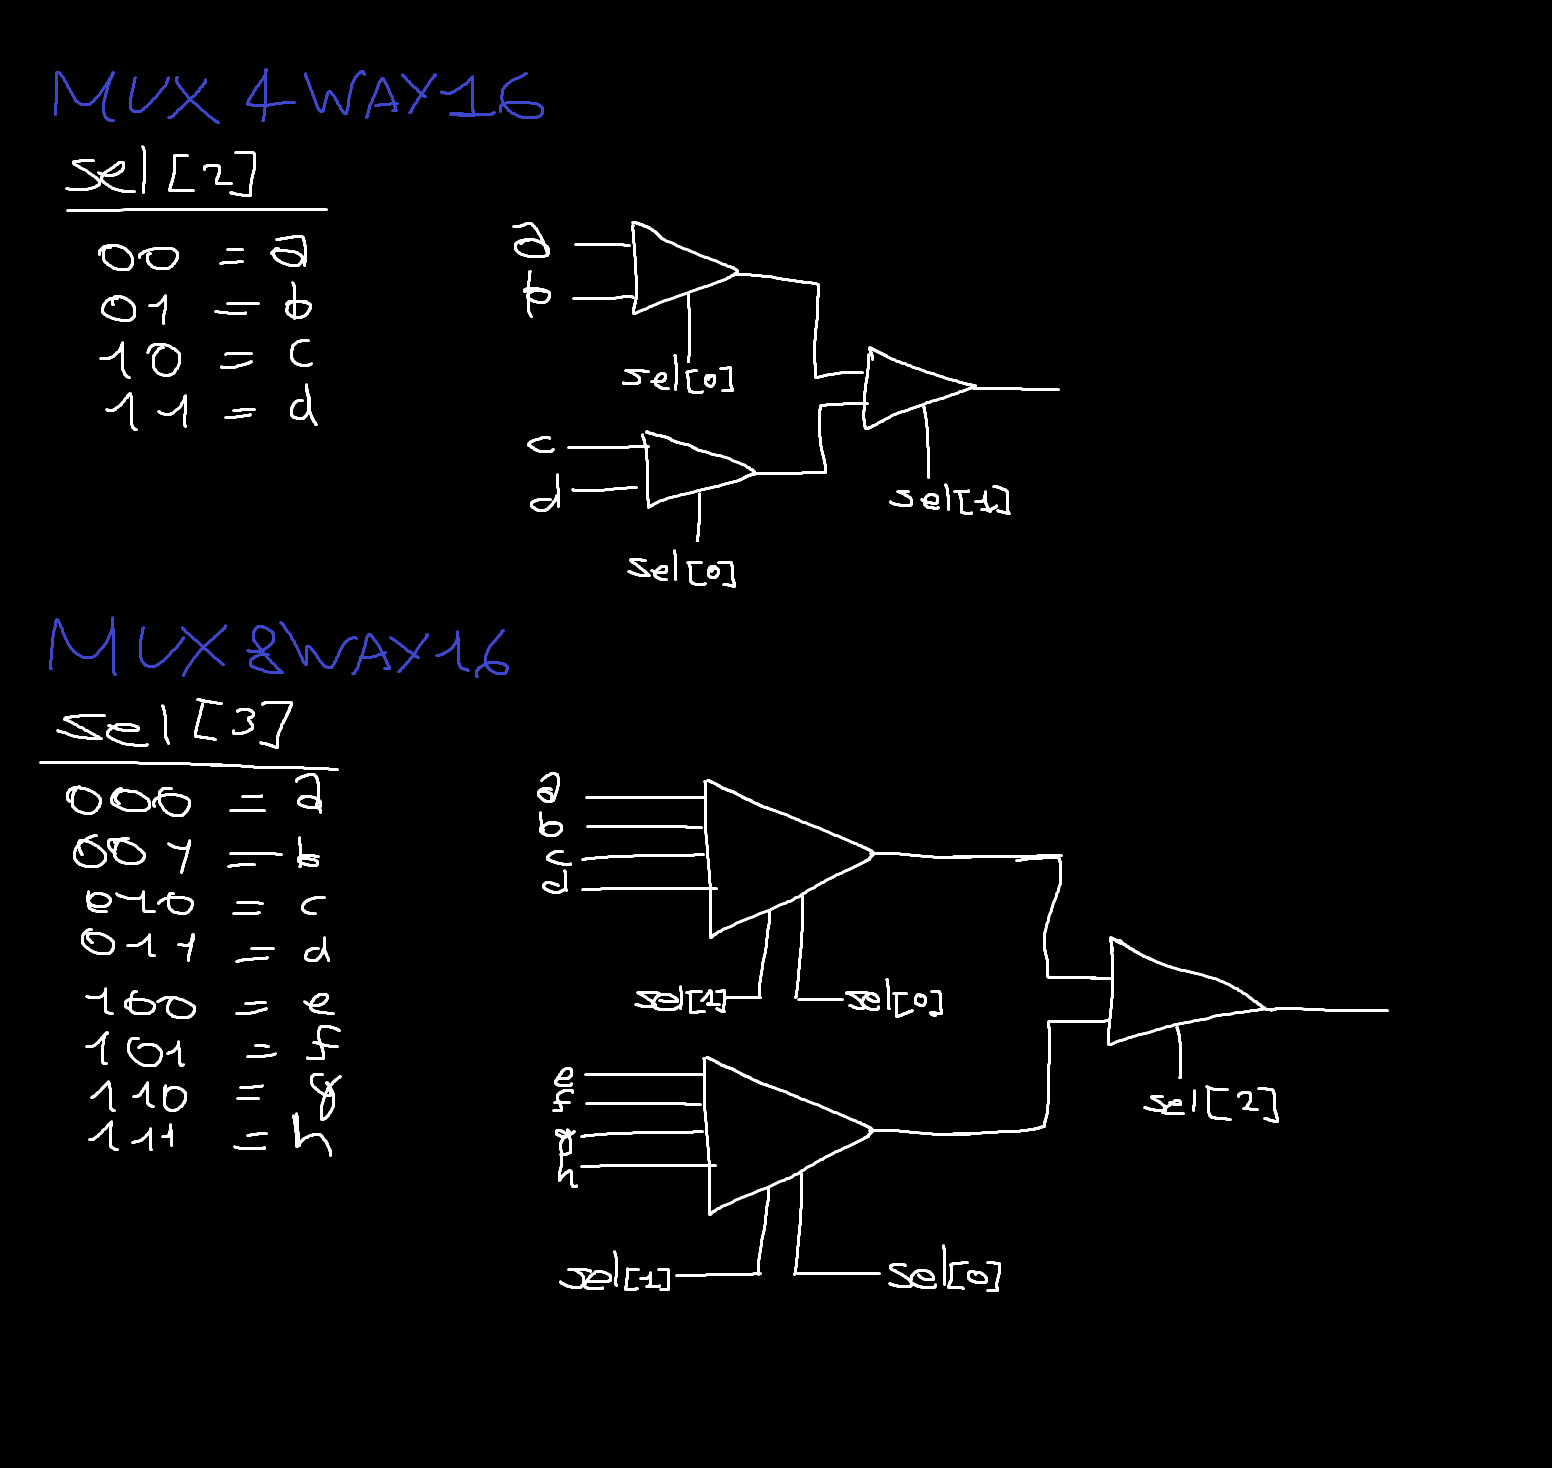 MUX4WAY16
sel[2]
00 = a
01 = b
10 = c
11 = d
a
b
sel[0]
c
d
sel[0]
sel[1]
MUX8WAY16
sel[3]
000 = a
001 = b
010 = c
011 = d
100 = e
101 = f
110 = g
111 = h
a
b
c
d
sel[1] sel[0]
e
f
g
h
sel[1] sel[0]
sel[2]